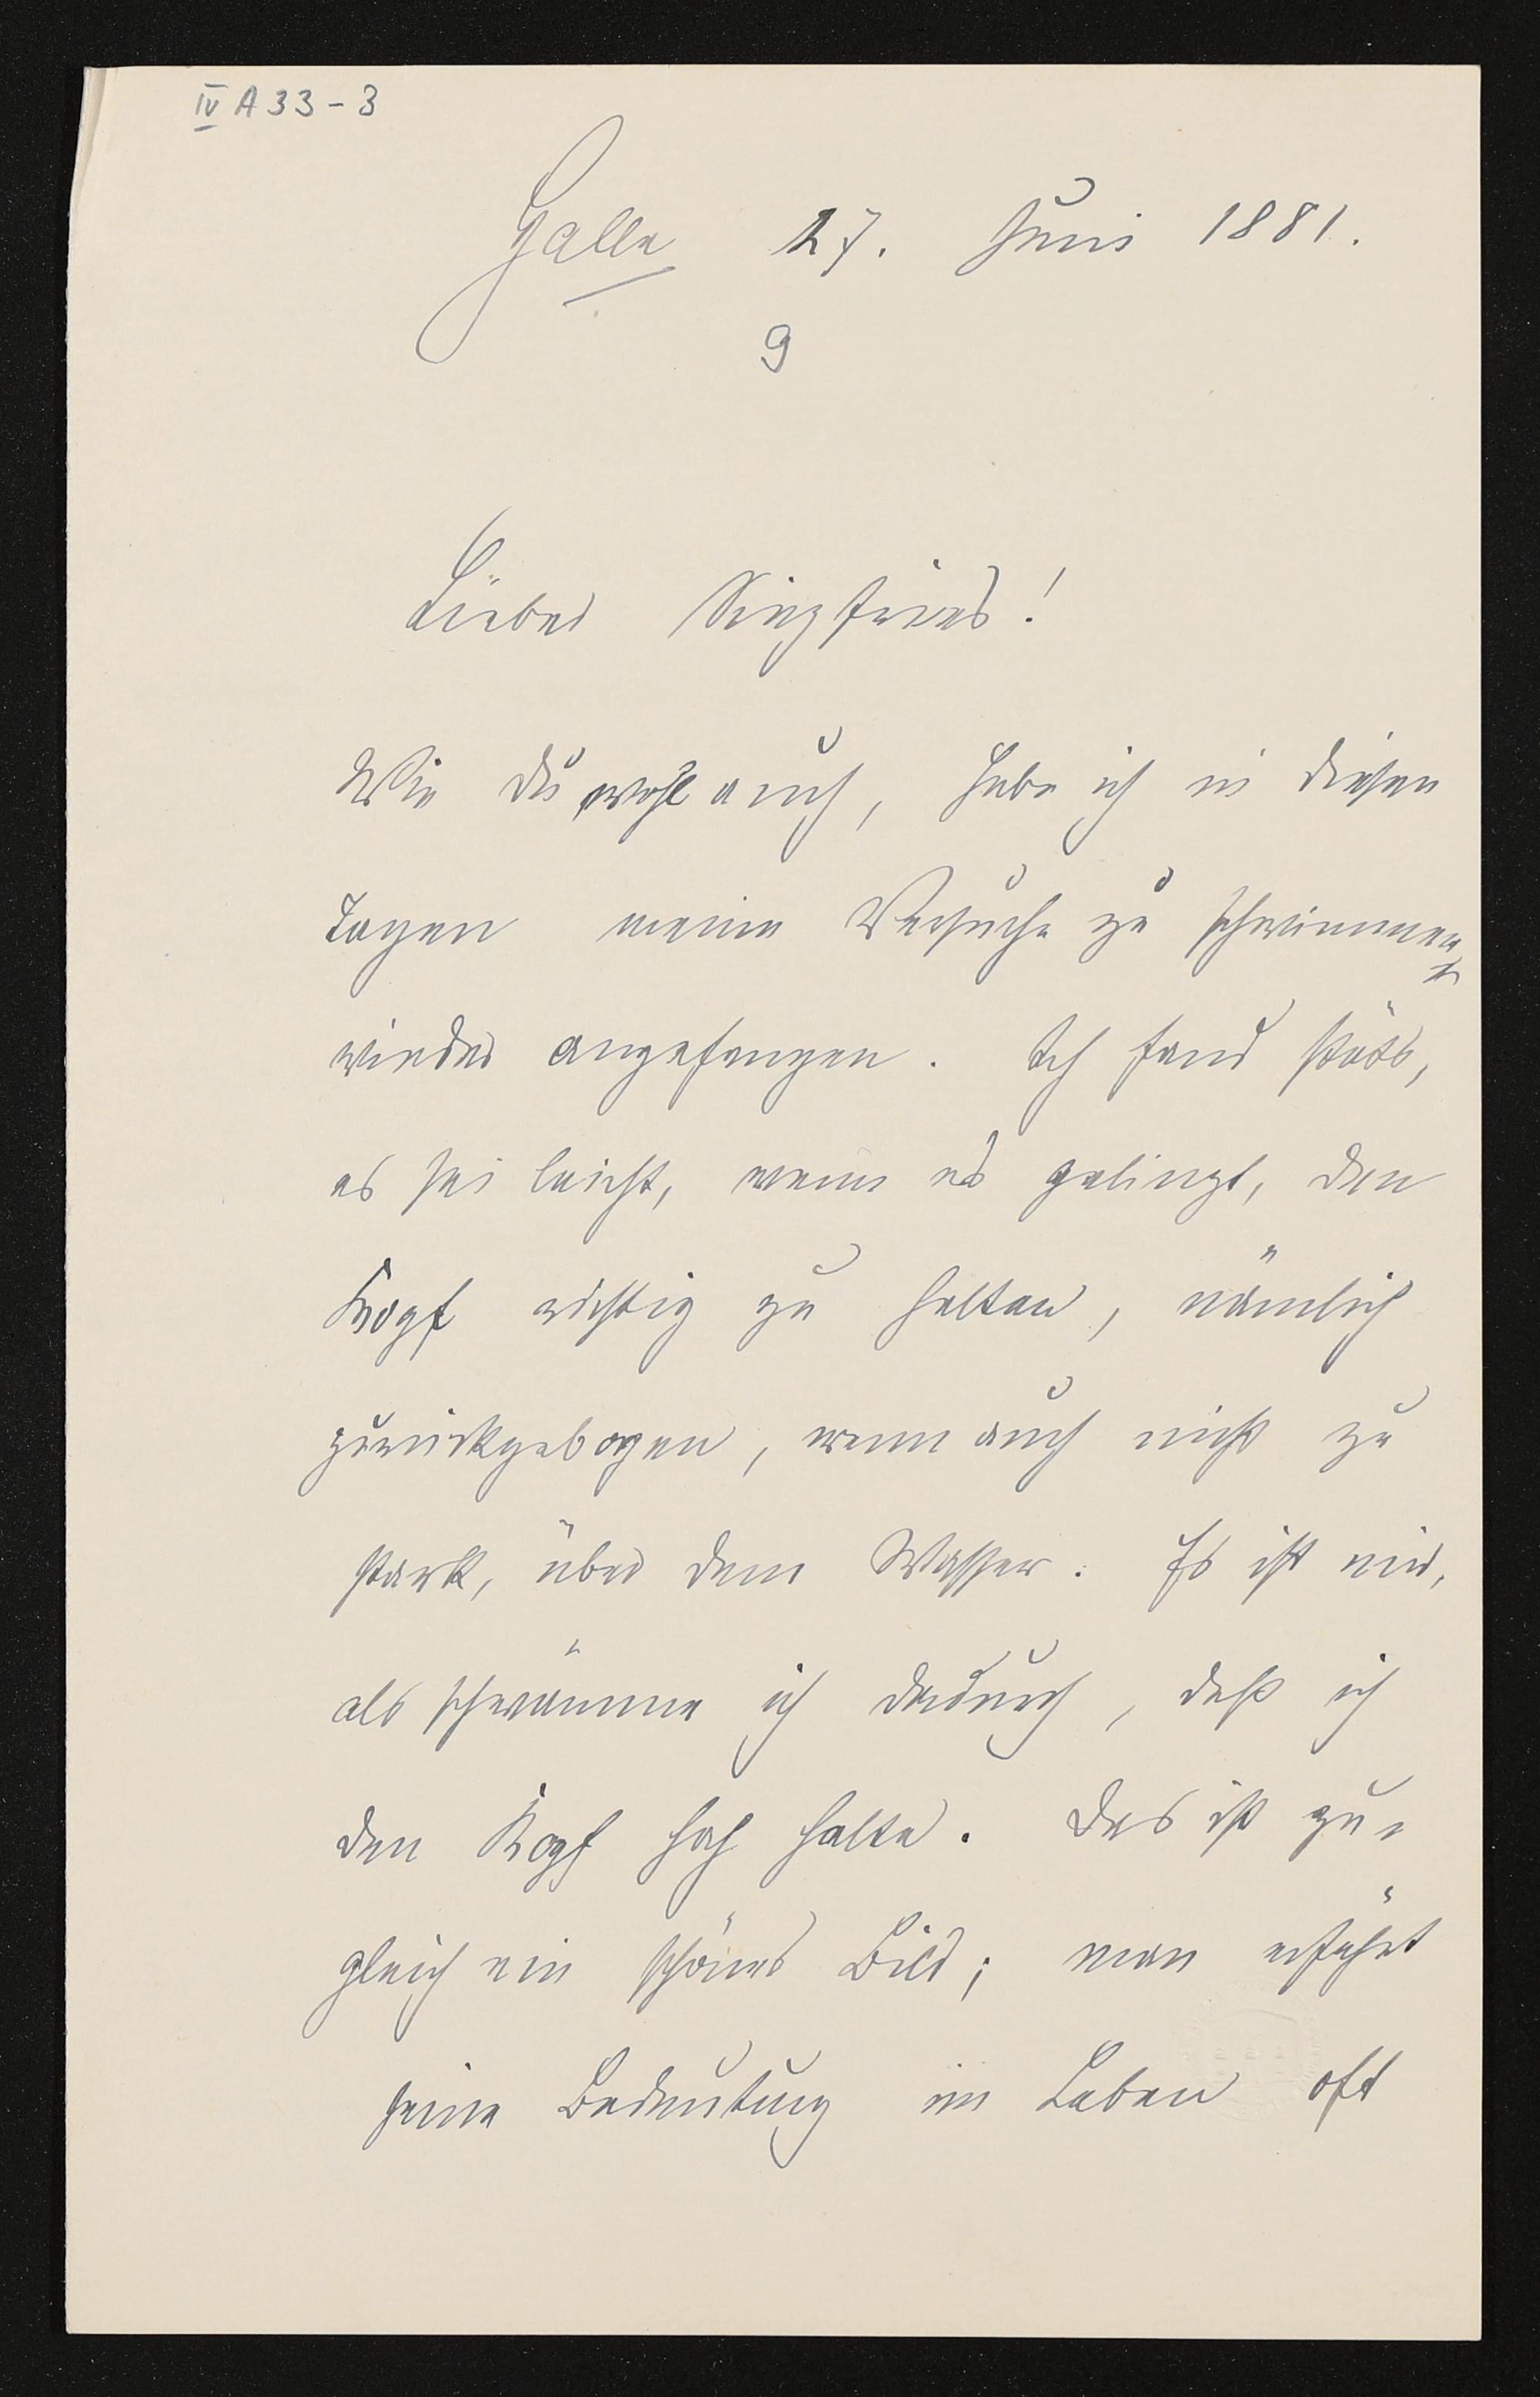 IV A 33 - 3
Halle 27. Juni 1881.
9
Lieber Siegfried!
Wie Du wohl auch, habe ich in diesen
Tagen meine Versuche zu schwimmen
wieder angefangen. Ich fand stäts,
es sei leicht, wenn es gelingt, den
Kopf richtig zu halten, nämlich
zurückgebogen, wenn auch nicht zu
stark, über dem Wasser. Es ist mir,
als schwämme ich dadurch, daß ich
den Kopf hoch halte. Das ist zu-
gleich ein schönes Bild; man erfährt
seine Bedeutung im Leben oft